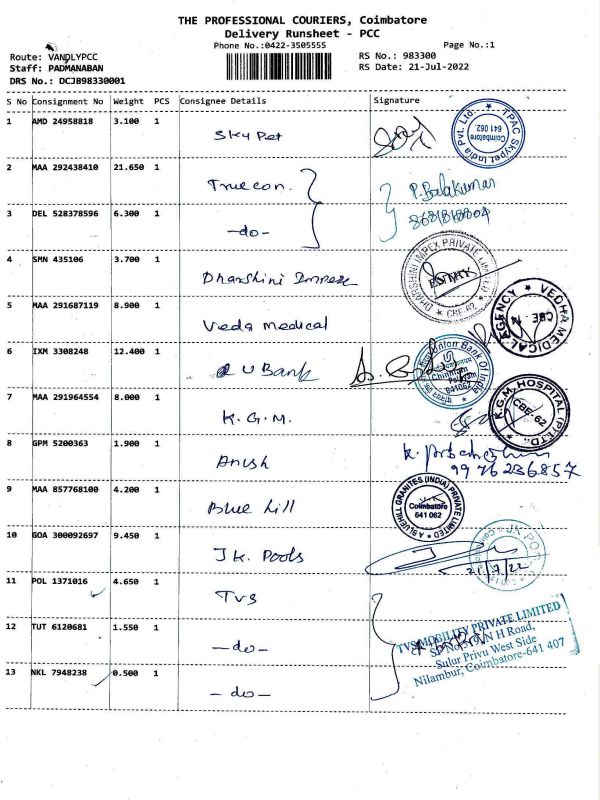 THE PROFESSIONAL COURIERS, Coimbatore
Delivery Runsheet - PCC
Phone No.:0422-3505555 Page No.:1
Route: VANDLYPCC RS No.: 983300
Staff: PADMANABAN RS Date: 21-Jul-2022
DRS No.: DCJB98330001
S No Consignment No Weight PCS Consignee Details Signature
1 AMD 24958818 3.100 1 Sky Pet
TPAC Skypet India Pvt. Ltd. Coimbatore 641 062
2 MAA 292438410 21.650 1 Truecon. P. Balakumar
3 DEL 528378596 6.300 1 -do-
4 SMN 435106 3.700 1 Dharshini Impex
DHARSHINI IMPEX PRIVATE LIMITED CBE-62
5 MAA 291687119 8.900 1 Veda Medical
VEDHA MEDICAL AGENCY CBE
6 IXM 3308248 12.400 1 U Bank
Union Bank Of India
Chinniam
Palayam
641062
7 MAA 291964554 8.000 1 K.G.M.
K.G.M. HOSPITAL (P) LTD., CBE-62
8 GPM 5200363 1.900 1 Anush
9976236857
9 MAA 857768100 4.200 1 Blue hill
A BLUEHILL GRANITES (INDIA) PRIVATE LIMITED Coimbatore 641 062
10 GOA 300092697 9.450 1 JK. Pools
21/7/22
11 POL 1371016 4.650 1 TVS
12 TUT 6120681 1.550 1 -do-
TVS MOBILITY PRIVATE LIMITED
N H Road,
Sulur Privu West Side
Nilambur, Coimbatore-641 407
13 NKL 7948238 0.500 1 -do-